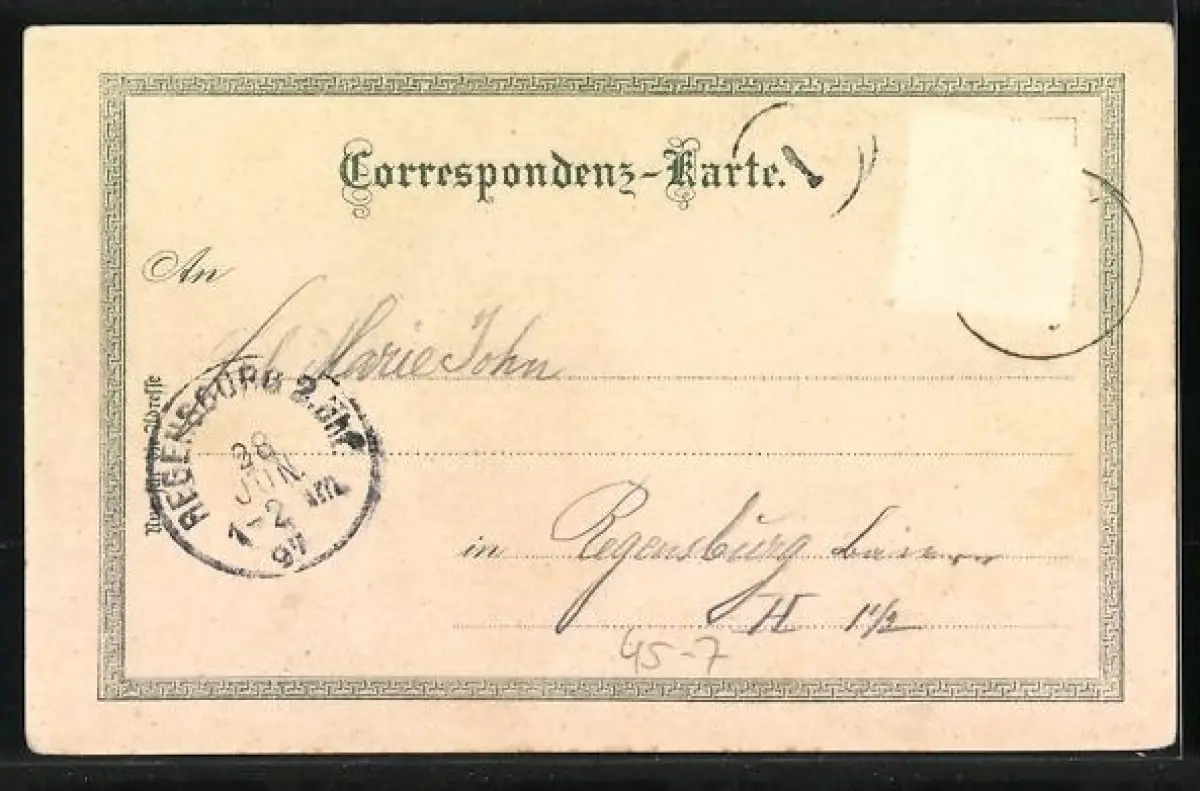 Correspondenz-Karte.
An
Marie John
Nur für die Adresse
REGENSBURG 2. Bhf.
28
JUN.
1-2 Nm.
97
in Regensburg
H 11/2
45-7